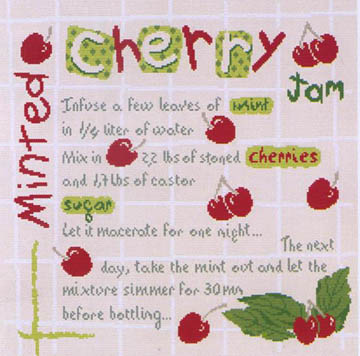 Minted
Cherry
Jam
Infuse a few leaves of mint
in 1/4 liter of water
Mix in 2,2 lbs of stoned cherries
and 1,7 lbs of castor
sugar
Let it macerate for one night...
The next
day, take the mint out and let the
mixture simmer for 30 mn
before bottling...